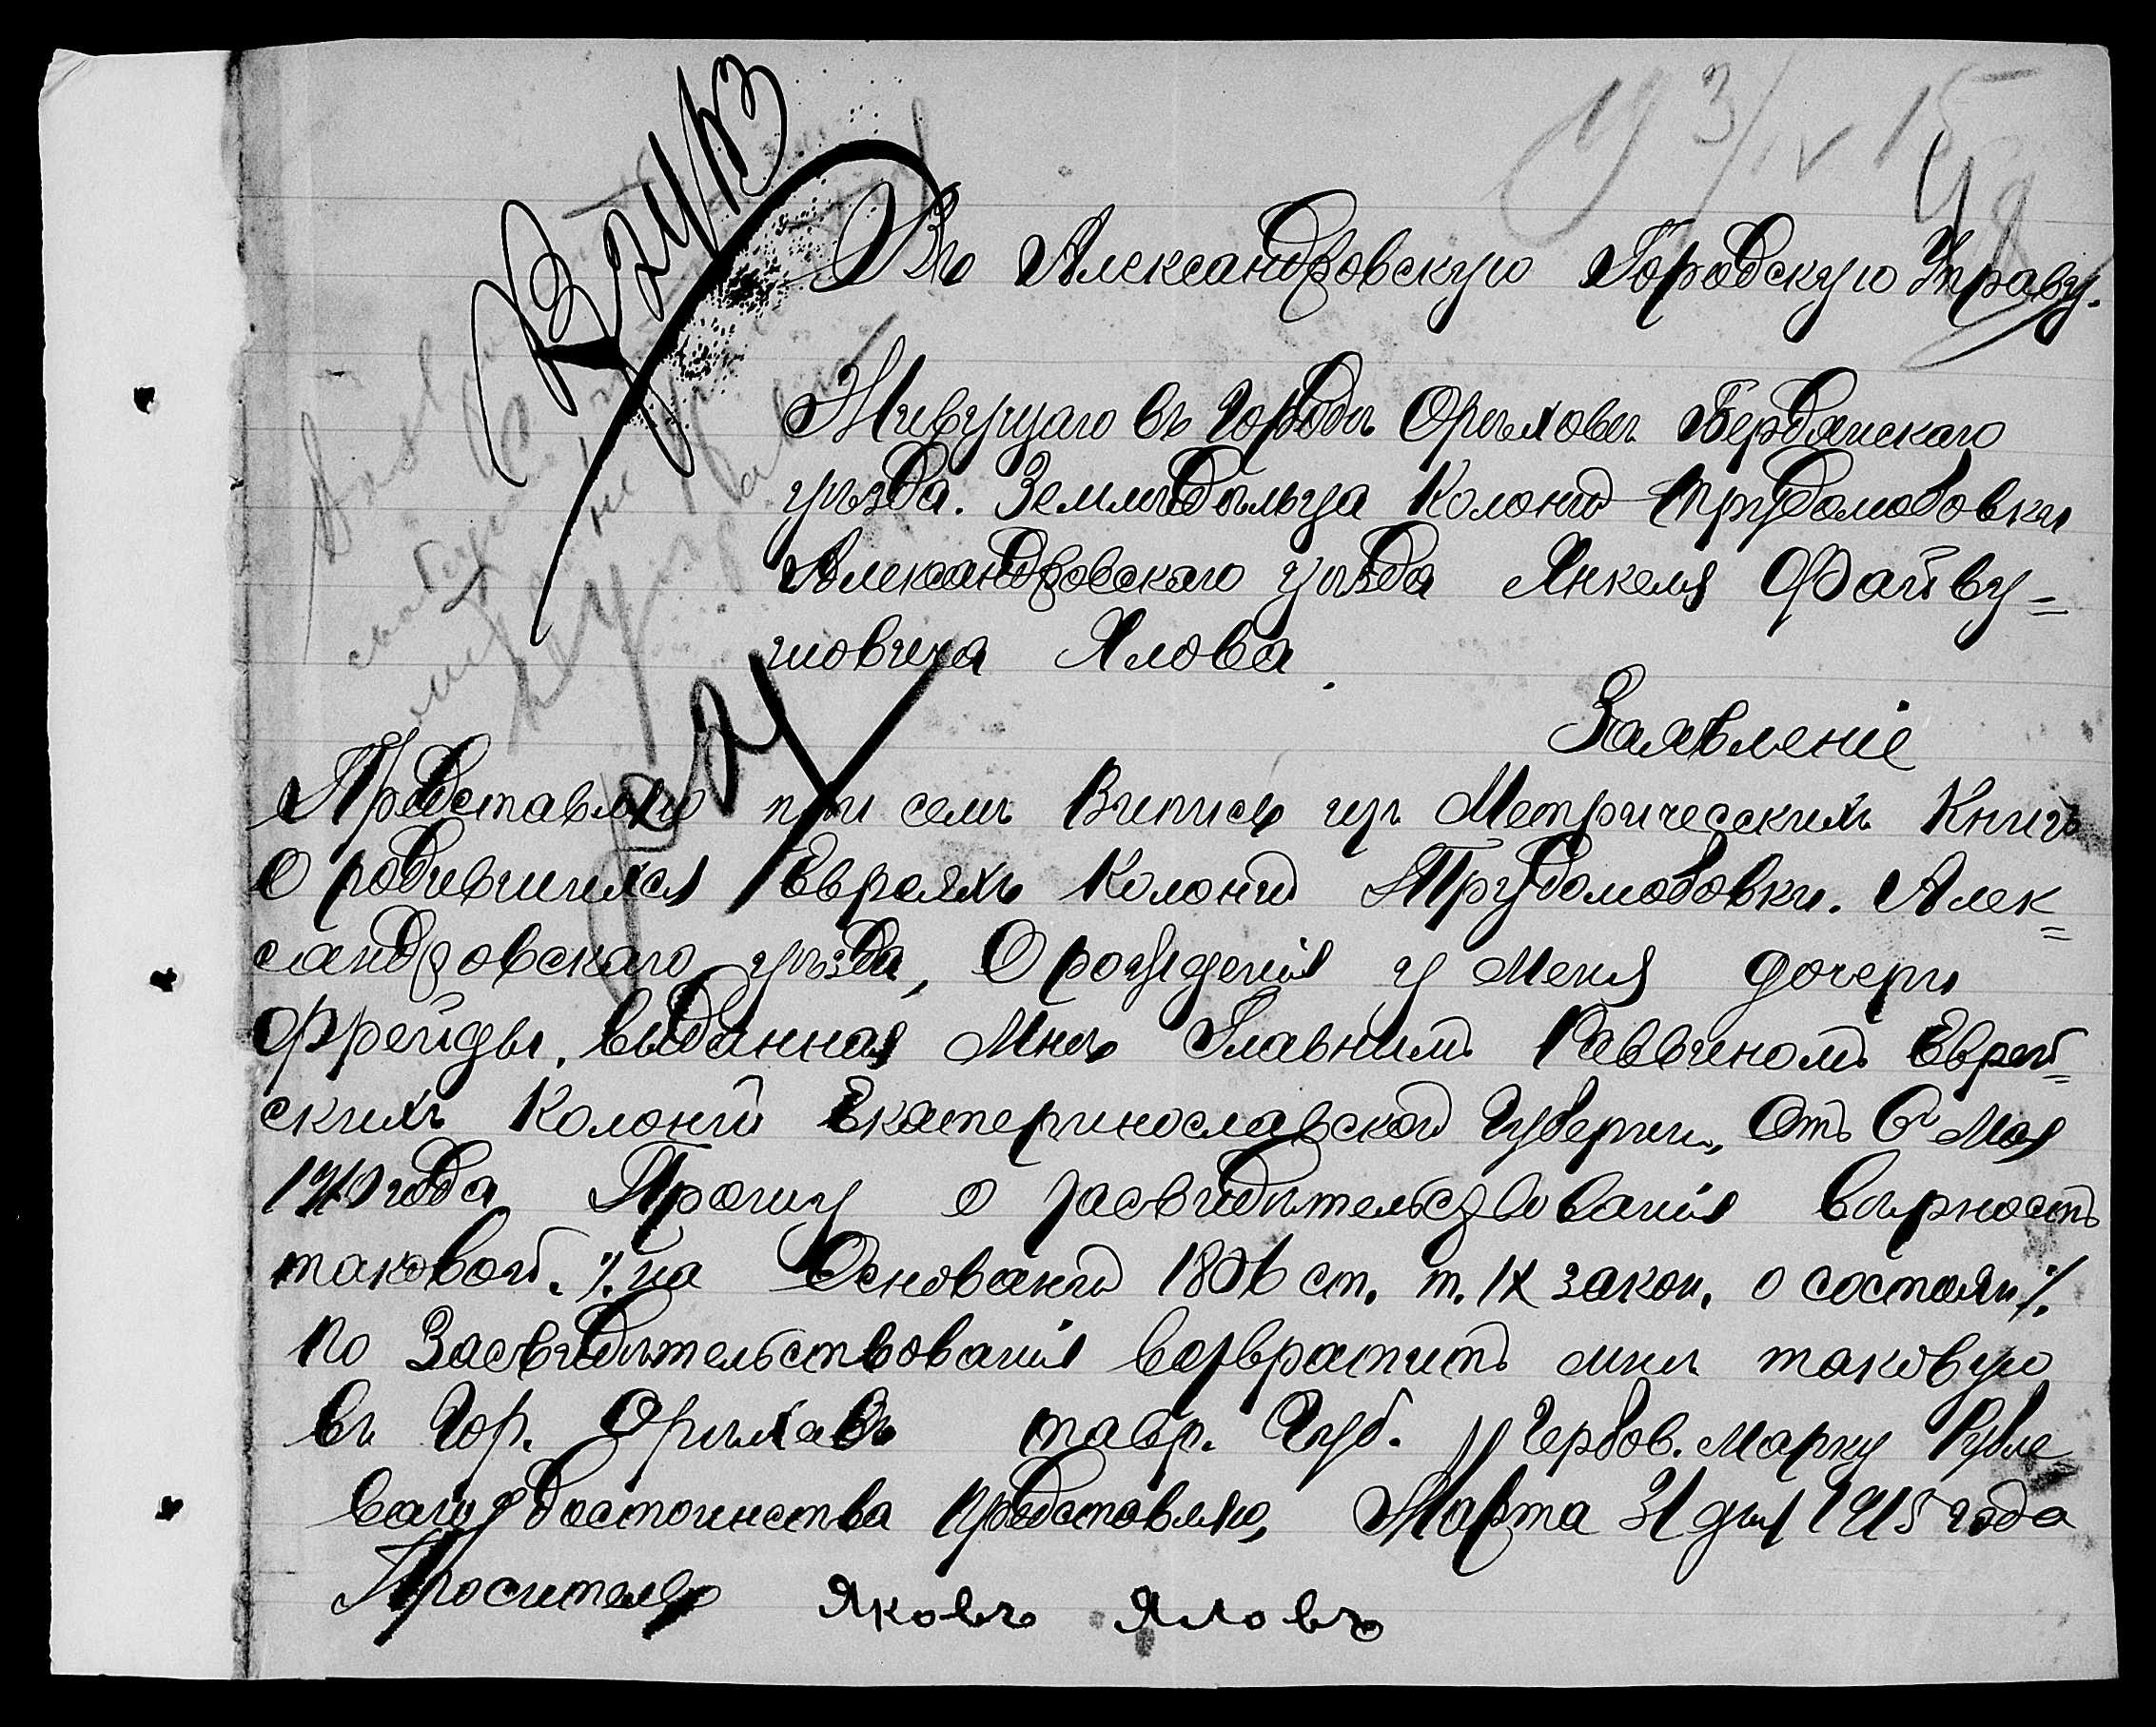 19 3/IV 15
Въ Александровскую Городскую Управу.
Живущаго въ Городѣ Орѣховѣ Бердянскаго
уѣзда. Земледѣльца Колоніи Трудолюбовки
Александровскаго уѣзда Янкеля Файву=
шовича Ялова.
Заявленіе
Представляю при семъ Випись изъ Метрическихъ Книгъ
О родившихся Евреяхъ Колоніи Трудолюбовки. Алек=
сандровскаго уѣзда, О рожденія у Меня дочери
Фрейды, выданная Мнѣ Главнимъ Раввиномъ Еврей=
скихъ Колоній Екатеринославской Губерніи, Отъ 6го Мая
1910 года Прошу о засвидѣтельствованія вѣрность
таковой. %. на Основаніи 1806 ст. т. IX закон. о состоян %.
по Засвидѣтельствованія возвратить мнѣ таковую
въ Гор. Орѣховъ тавр. Губ. Гербов. Марку Рубле
ваго достоинства представляю, Марта 31 дня 1915 года
Проситель Яковъ Яловъ